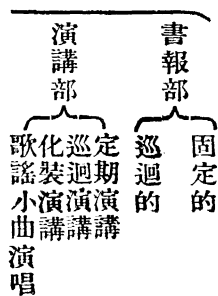 書報部
固定的
巡迴的
演講部
定期演講
巡迴演講
化裝演講
歌謠小曲演唱